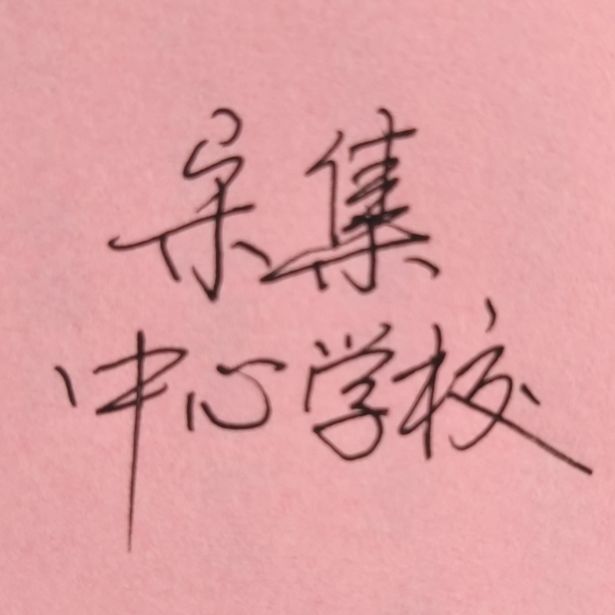 集
中心学校